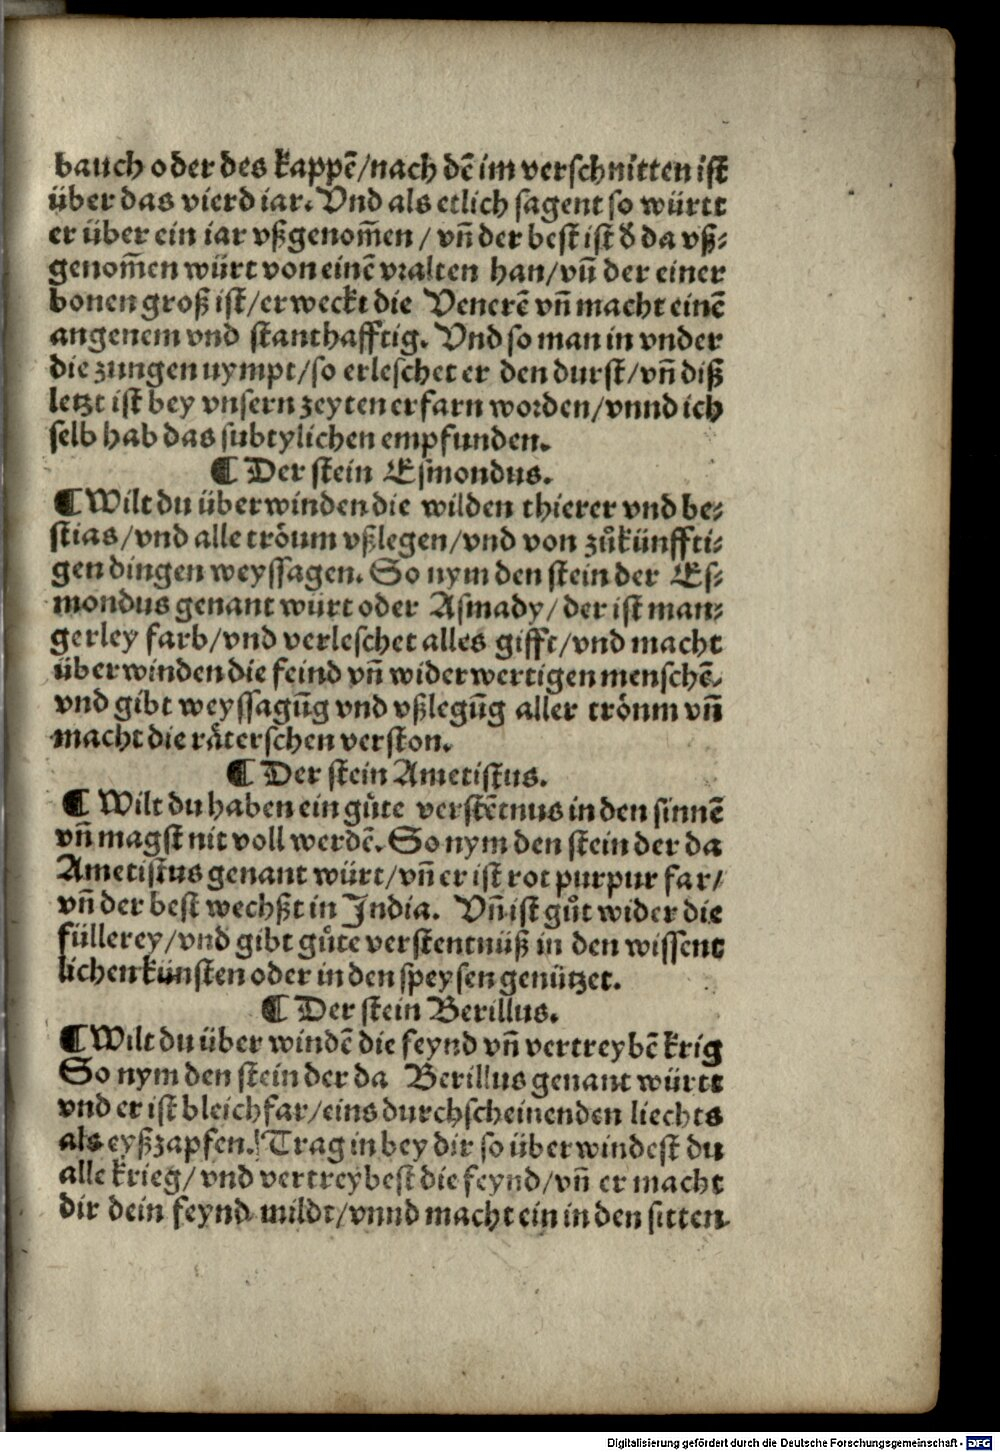 bauch oder des kappē/nach dē im verschnitten ist
über das vierd iar. Vnd als etlich sagent so württ
er über ein iar vßgenom̄en / vn̄ der best ist d' da vß⸗
genom̄en würt von einē vralten han/vn̄ der einer
bonen groß ist/erweckt die Venerē vn̄ macht einē
angenem vnd stanthafftig. Vnd so man in vnder
die zungen nympt/so erleschet er den durst/vn̄ diß
letzt ist bey vnsern zeyten erfarn worden/vnnd ich
selb hab das subtylichen empfunden.
¶ Der stein Esmondus.
¶ Wilt du überwinden die wilden thierer vnd be⸗
stias/vnd alle tröum vßlegen/vnd von zůkünffti⸗
gen dingen weyssagen. So nym den stein der Es⸗
mondus genant würt oder Asmady/der ist man⸗
gerley farb/vnd verleschet alles gifft/vnd macht
überwinden die feind vn̄ widerwertigen menschē.
vnd gibt weyssagūg vnd vßlegūg aller trönm vn̄
macht die räterschen verston.
¶ Der stein Ametistus.
¶ Wilt du haben ein gůte verstētnus in den sinnē
vn̄ magst nit voll werdē. So nym den stein der da
Ametistus genant würt/vn̄ er ist rot purpur far/
vn̄ der best wechßt in India. Vn̄ ist gůt wider die
füllerey/vnd gibt gůte verstentnüß in den wissent
lichen künsten oder in den speysen genützet.
¶ Der stein Berillus.
¶ Wilt du über windē die feynd vn̄ vertreybē krig
So nym den stein der da Berillus genant württ
vnd er ist bleichfar/eins durchscheinenden liechts
als eyßzapfen. Trag in bey dir so überwindest du
alle krieg/vnd vertreybest die feynd/vn̄ er macht
dir dein feynd mildt/vnnd macht ein in den sitten
Digitalisierung gefördert durch die Deutsche Forschungsgemeinschaft - DFG